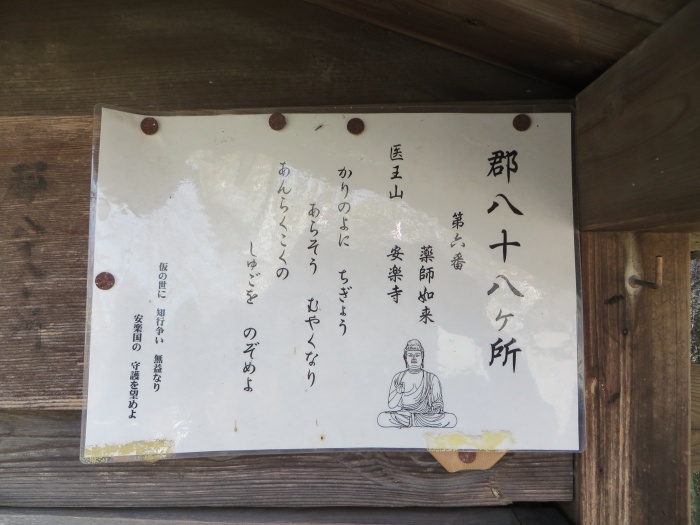 郡八十八ヶ所
第六番
薬師如来
医王山　安楽寺
かりのよに　ちぎょう
あらそう　むやくなり
あんらくこくの
しゅごを　のぞめよ
仮の世に　知行争い　無益なり
安楽国の　守護を望めよ